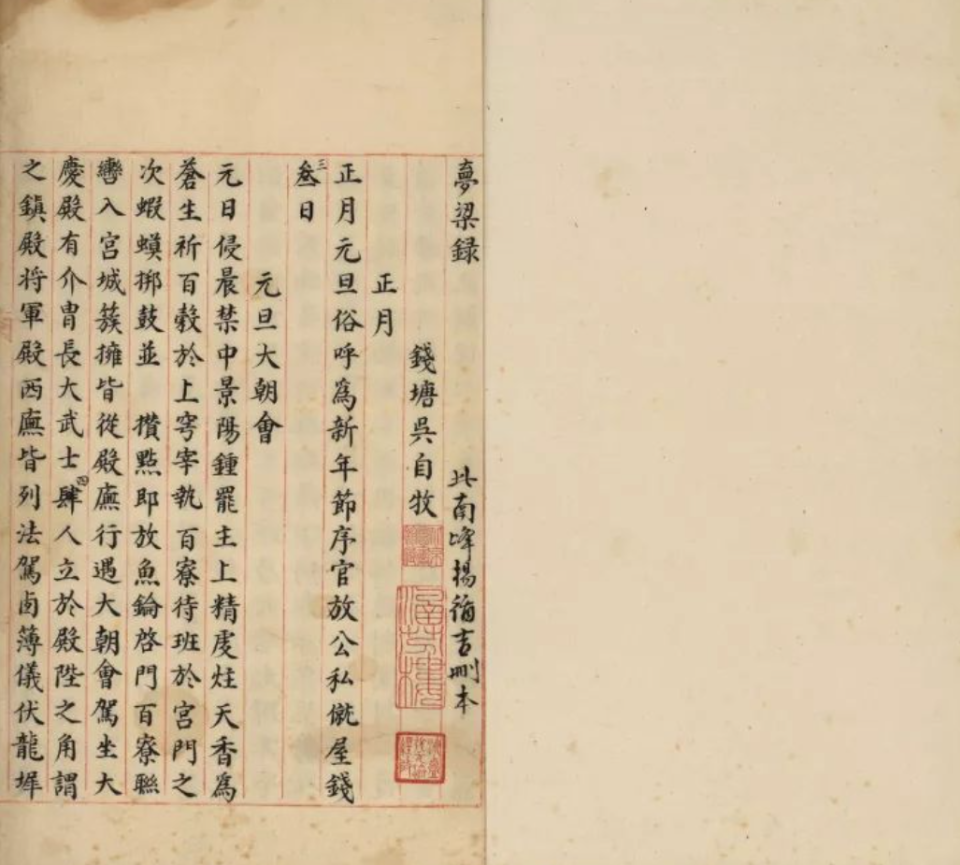 夢梁録 此南峰楊循吉刪本
錢塘吳自牧
涵芬樓
海鹽張元濟經收
正月
正月元旦俗呼為新年節序官放公私僦屋錢
叁三日
元旦大朝會
元日侵晨禁中景陽鍾罷主上精虔炷天香為
蒼生祈百穀於上穹宰執百寮待班於宮門之
次蝦蟆梆鼓並 攢點即放魚鑰啓門百寮聯
轡入宮城簇擁皆從殿廡行遇大朝會駕坐大
慶殿有介胄長大武士肆四人立於殿陛之角謂
之鎮殿將軍殿西廡皆列法駕鹵簿儀伏龍墀